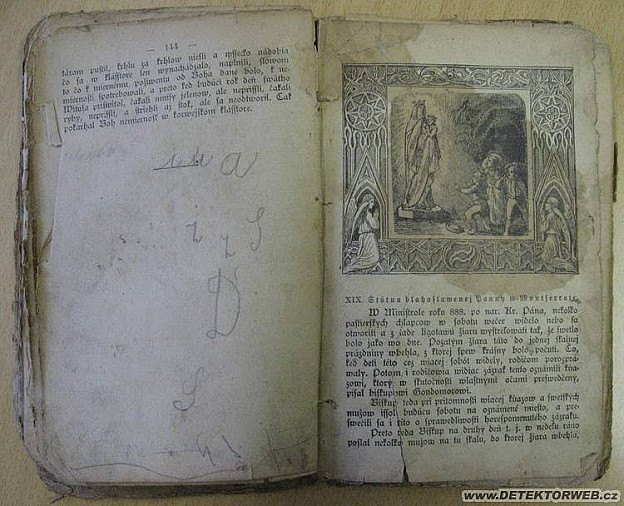 — 144 —
tárom pustil, krhlu za krhlow niesli a wssecko nádobia
čo sa w klásstore len wynachádzalo, naplnili, slowom
to čo k miernemu požiweniu od Boha dané bolo, k ne-
miernosti spotrebowali, a preto keď budúci rok deň swätho
Winula prišwitol, čakali mnisi jelenow, ale neprissli, čakali
ryby, neprissli, a striehli aj štok, ale sa neotworil. Tak
pokarhal Boh nemiernosť w korwejskom klásstore.
XIX. Státua blahoslawenej Panny w Montserrat
W Ministrole roku 888. po nar. Kr. Pána, nekolko
pastierskych chlapcow w sobotu wečer widelo nebo sa
otworiti a z jade ligotawú žiaru wystrelowati tak, že swetlo
bolo jako wo dne. Pozatým žiara táto do jednej skalnej
prázdniny wbehla, z ktorej spew krásny bolo počuti. Čo,
keď deti této cez wiacej sobôt widely, rodičom porozprá-
waly. Potom i rodičowia widiac zázrak tento oznámili kňa-
zowi, ktorý w skutočnosti wlastnými očami preswedčený,
písal biskupowi Gondomarowi.
Biskup teda pri prítomnosti wiacej kňazow a swetských
mužow issol budúcu sobotu na oznámené miesto, a pre-
swečili sa i títo o sprawedliwosti horespomenutého zázraku.
Preto teda Biskup na druhý deň t. j. w nedelu ráno
poslal nekolko mužow na tu skalu, do ktorej žiara wbehla,
www.DETEKTORWEB.cz